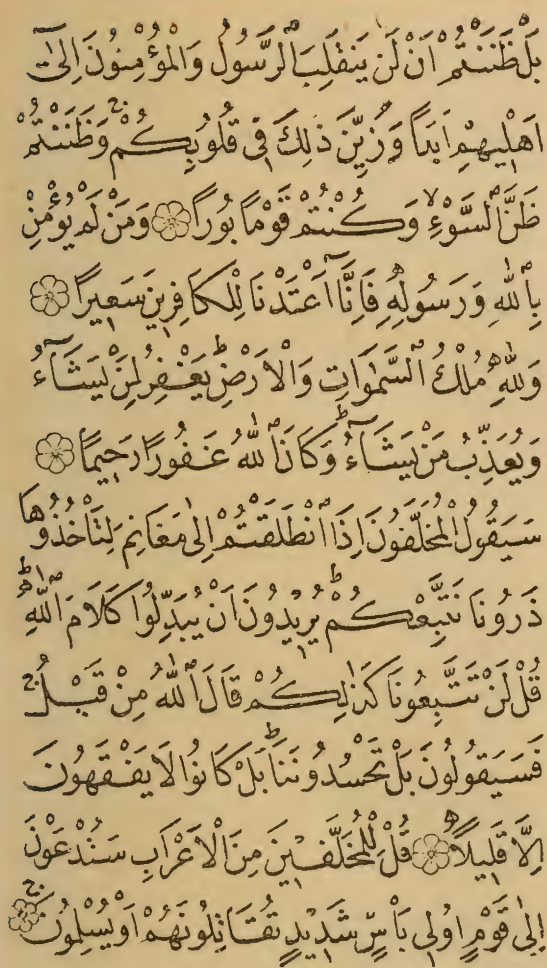 بَلْ ظَنَنْتُمْ اَنْ لَنْ يَنْقَلِبَ الرَّسُولُ وَالْمُؤْمِنُونَ اِلٰٓى
اَهْلِيهِمْ اَبَدًا وَزُيِّنَ ذٰلِكَ فِى قُلُوبِكُمْ ۚ وَظَنَنْتُمْ
ظَنَّ السَّوْءِ ۙ وَكُنْتُمْ قَوْمًا بُورًا ۝ وَمَنْ لَمْ يُؤْمِنْ
بِاللّٰهِ وَرَسُولِهِ فَاِنَّٓا اَعْتَدْنَا لِلْكَافِرِينَ سَعِيرًا ۝
وَلِلّٰهِ مُلْكُ السَّمٰوَاتِ وَالْاَرْضِ ۜ يَغْفِرُ لِمَنْ يَشَٓاءُ
وَيُعَذِّبُ مَنْ يَشَٓاءُ ۜ وَكَانَ اللّٰهُ غَفُورًا رَحِيمًا ۝
سَيَقُولُ الْمُخَلَّفُونَ اِذَا انْطَلَقْتُمْ اِلٰى مَغَانِمَ لِتَأْخُذُوهَا
ذَرُونَا نَتَّبِعْكُمْ ۚ يُرِيدُونَ اَنْ يُبَدِّلُوا كَلَامَ اللّٰهِ ۜ
قُلْ لَنْ تَتَّبِعُونَا كَذٰلِكُمْ قَالَ اللّٰهُ مِنْ قَبْلُ ۚ
فَسَيَقُولُونَ بَلْ تَحْسُدُونَنَا ۜ بَلْ كَانُوا لَا يَفْقَهُونَ
اِلَّا قَلِيلًا ۝ قُلْ لِلْمُخَلَّفِينَ مِنَ الْاَعْرَابِ سَتُدْعَوْنَ
اِلٰى قَوْمٍ اُولِى بَأْسٍ شَدِيدٍ تُقَاتِلُونَهُمْ اَوْ يُسْلِمُونَ ۚ ۝